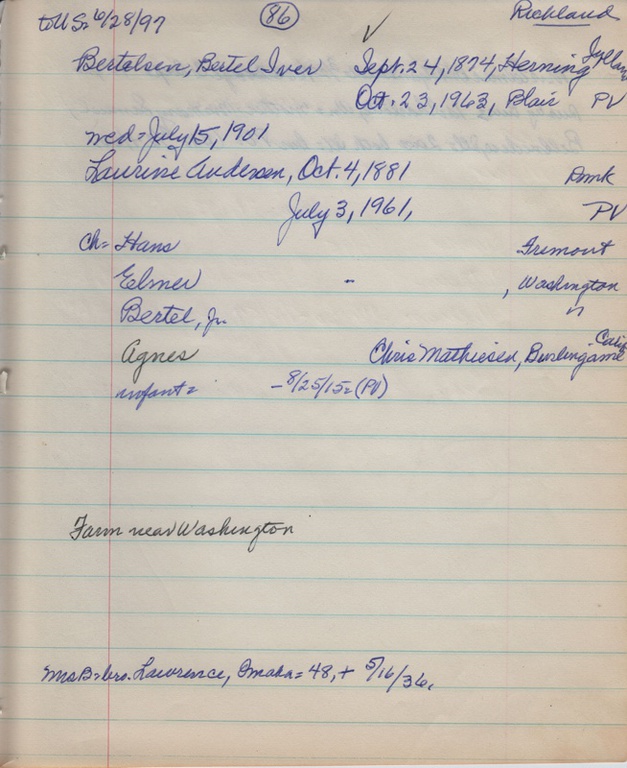 to U.S. 6/28/97 (86) Richland
Bertelsen, Bertel Iver Sept. 24, 1874, Herning Jylland
Oct. 23, 1963, Blair PV
med = July 15, 1901
Laurine Andersen, Oct. 4, 1881 Dmk
July 3, 1961, PV
Ch = Hans Fremont
Elmer " , Washington
Bertel, Jr. "
Agnes Chris Mathiesen, Burlingame Calif.
infant = - 8/25/15 = (PV)
Farm near Washington
Mrs B = bro. Lawrence, Omaha = 48, + 5/16/36,